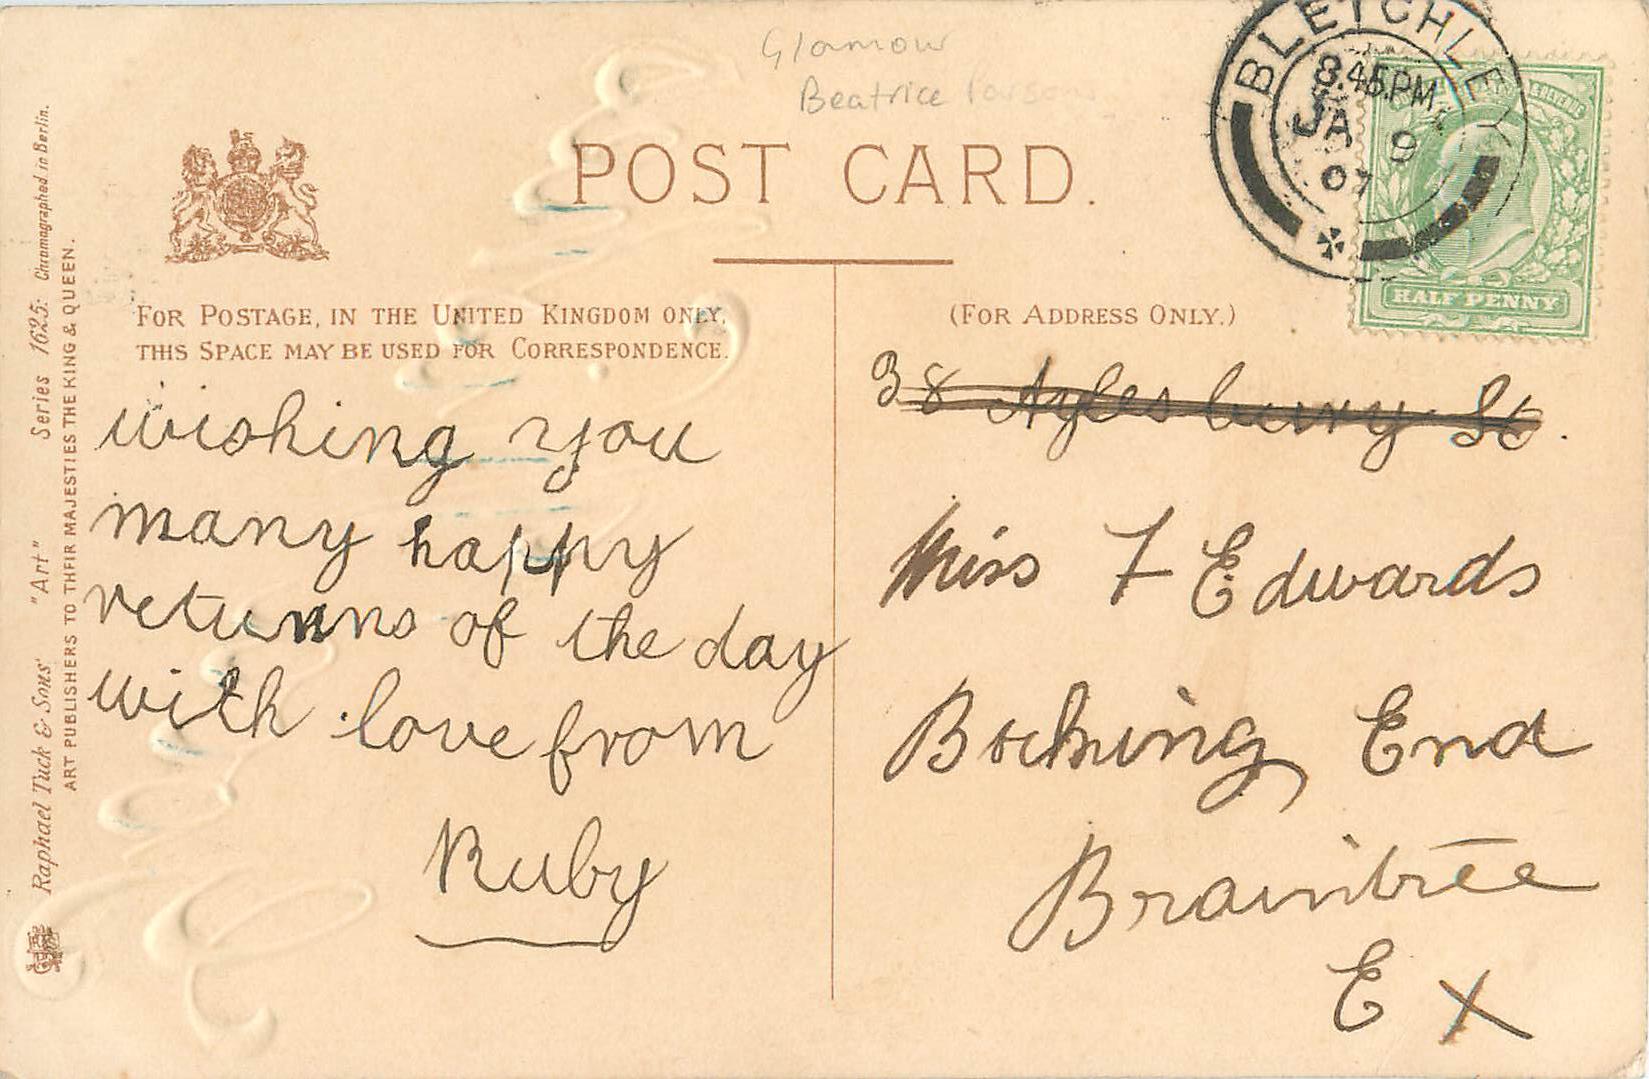 Glamour
Beatrice Parsons
POST CARD.
BLETCHLEY
8.45.PM
JA 9
07
HALF PENNY
FOR POSTAGE, IN THE UNITED KINGDOM ONLY,
THIS SPACE MAY BE USED FOR CORRESPONDENCE.
(FOR ADDRESS ONLY.)
wishing you
many happy
returns of the day
with love from
Ruby
38 Aylesbury St.
Miss F Edwards
Bocking End
Braintree
E X
Raphael Tuck & Sons' "Art" Series 1625: Chromographed in Berlin.
ART PUBLISHERS TO THEIR MAJESTIES THE KING & QUEEN.